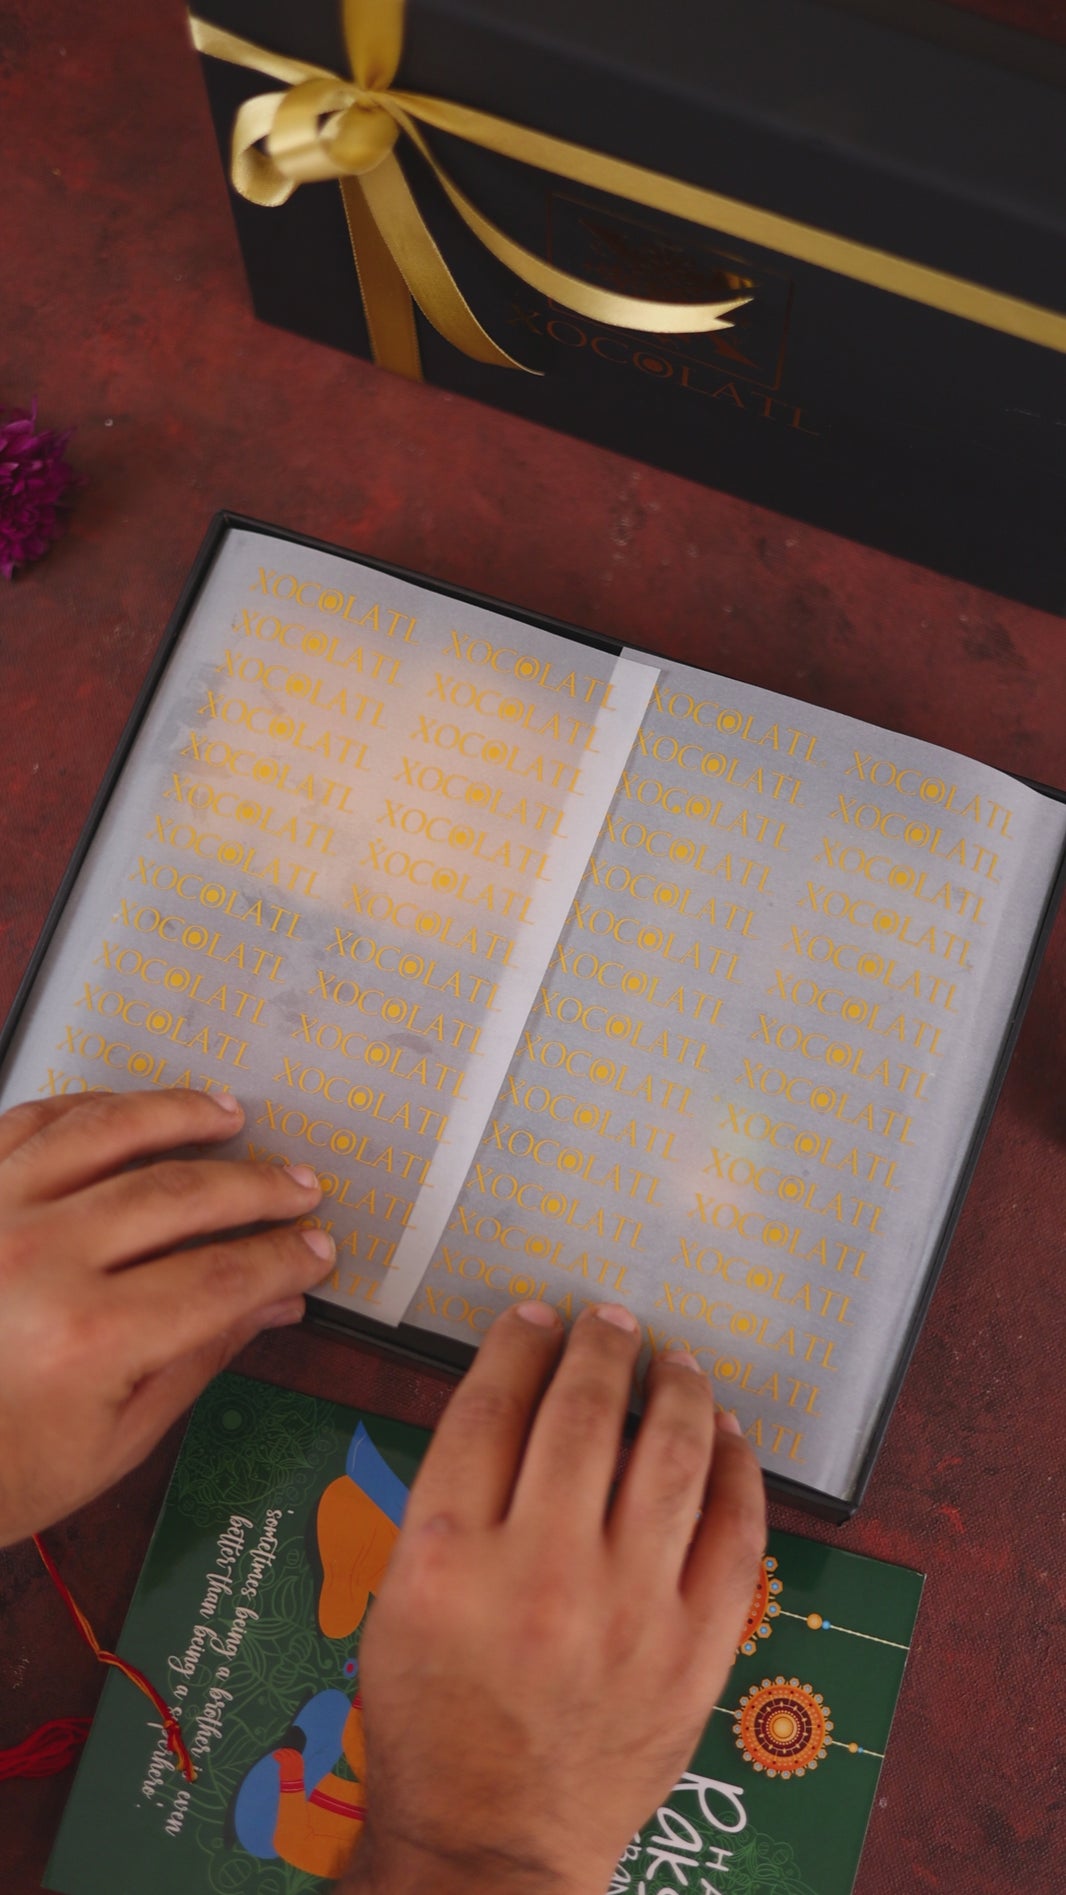 XOCOLATL
XOCOLATL XOCOLATL XOCOLATL XOCOLATL
XOCOLATL XOCOLATL XOCOLATL XOCOLATL
XOCOLATL XOCOLATL XOCOLATL XOCOLATL
XOCOLATL XOCOLATL XOCOLATL XOCOLATL
XOCOLATL XOCOLATL XOCOLATL XOCOLATL
XOCOLATL XOCOLATL XOCOLATL XOCOLATL
XOCOLATL XOCOLATL XOCOLATL XOCOLATL
XOCOLATL XOCOLATL XOCOLATL XOCOLATL
XOCOLATL XOCOLATL XOCOLATL XOCOLATL
XOCOLATL XOCOLATL XOCOLATL XOCOLATL
XOCOLATL XOCOLATL XOCOLATL XOCOLATL
XOCOLATL XOCOLATL XOCOLATL XOCOLATL
XOCOLATL XOCOLATL XOCOLATL
XOCOLATL XOCOLATL
'sometimes being a brother is even
better than being a superhero'.